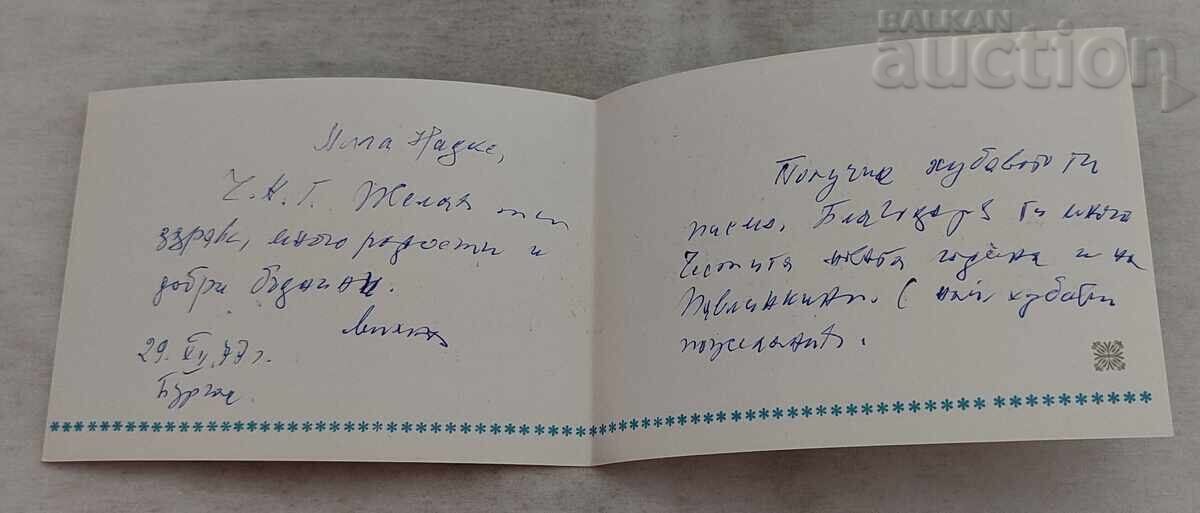 BALKAN
auction
Мила Надке,
Ч.Н.Г. Желая ти
здраве, много радости и
добри бъднини.
29.XII.77 г.
Бургас
Получих хубавото ти
писмо, Благодаря ти много
Честита новата година и на
Павлинкини. С най хубави
пожелания.